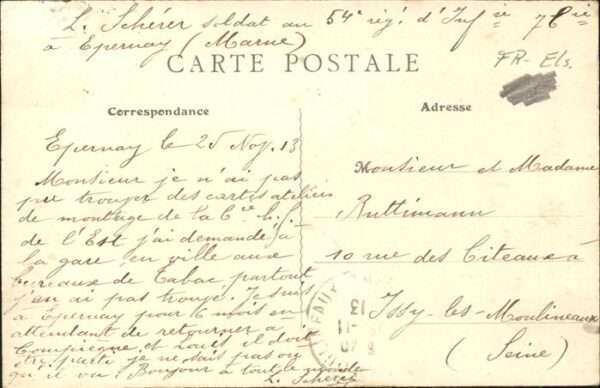 L. Schérer soldat au 54e rég. d'Infie 7e Cie
à Epernay (Marne)
FR-Els.
CARTE POSTALE
Correspondance
Adresse
Epernay le 25 Nov. 13
Monsieur je n'ai pas
pu trouver des cartes ateliers
de montage de la Cie
de l'Est j'ai demandé à
la gare en ville aux
bureaux de Tabac partout
j'en ai pas trouvé. Je suis
à Epernay pour 6 mois en
attendant de retourner à
Compiègne et Louis il doit
être parti je ne sais pas où
qu'il va. Bonjour à tout le monde
L. Schérer
Monsieur et Madame
Ruttimann
10 rue des Citeaux à
Issy-les-Moulineaux
(Seine)
13